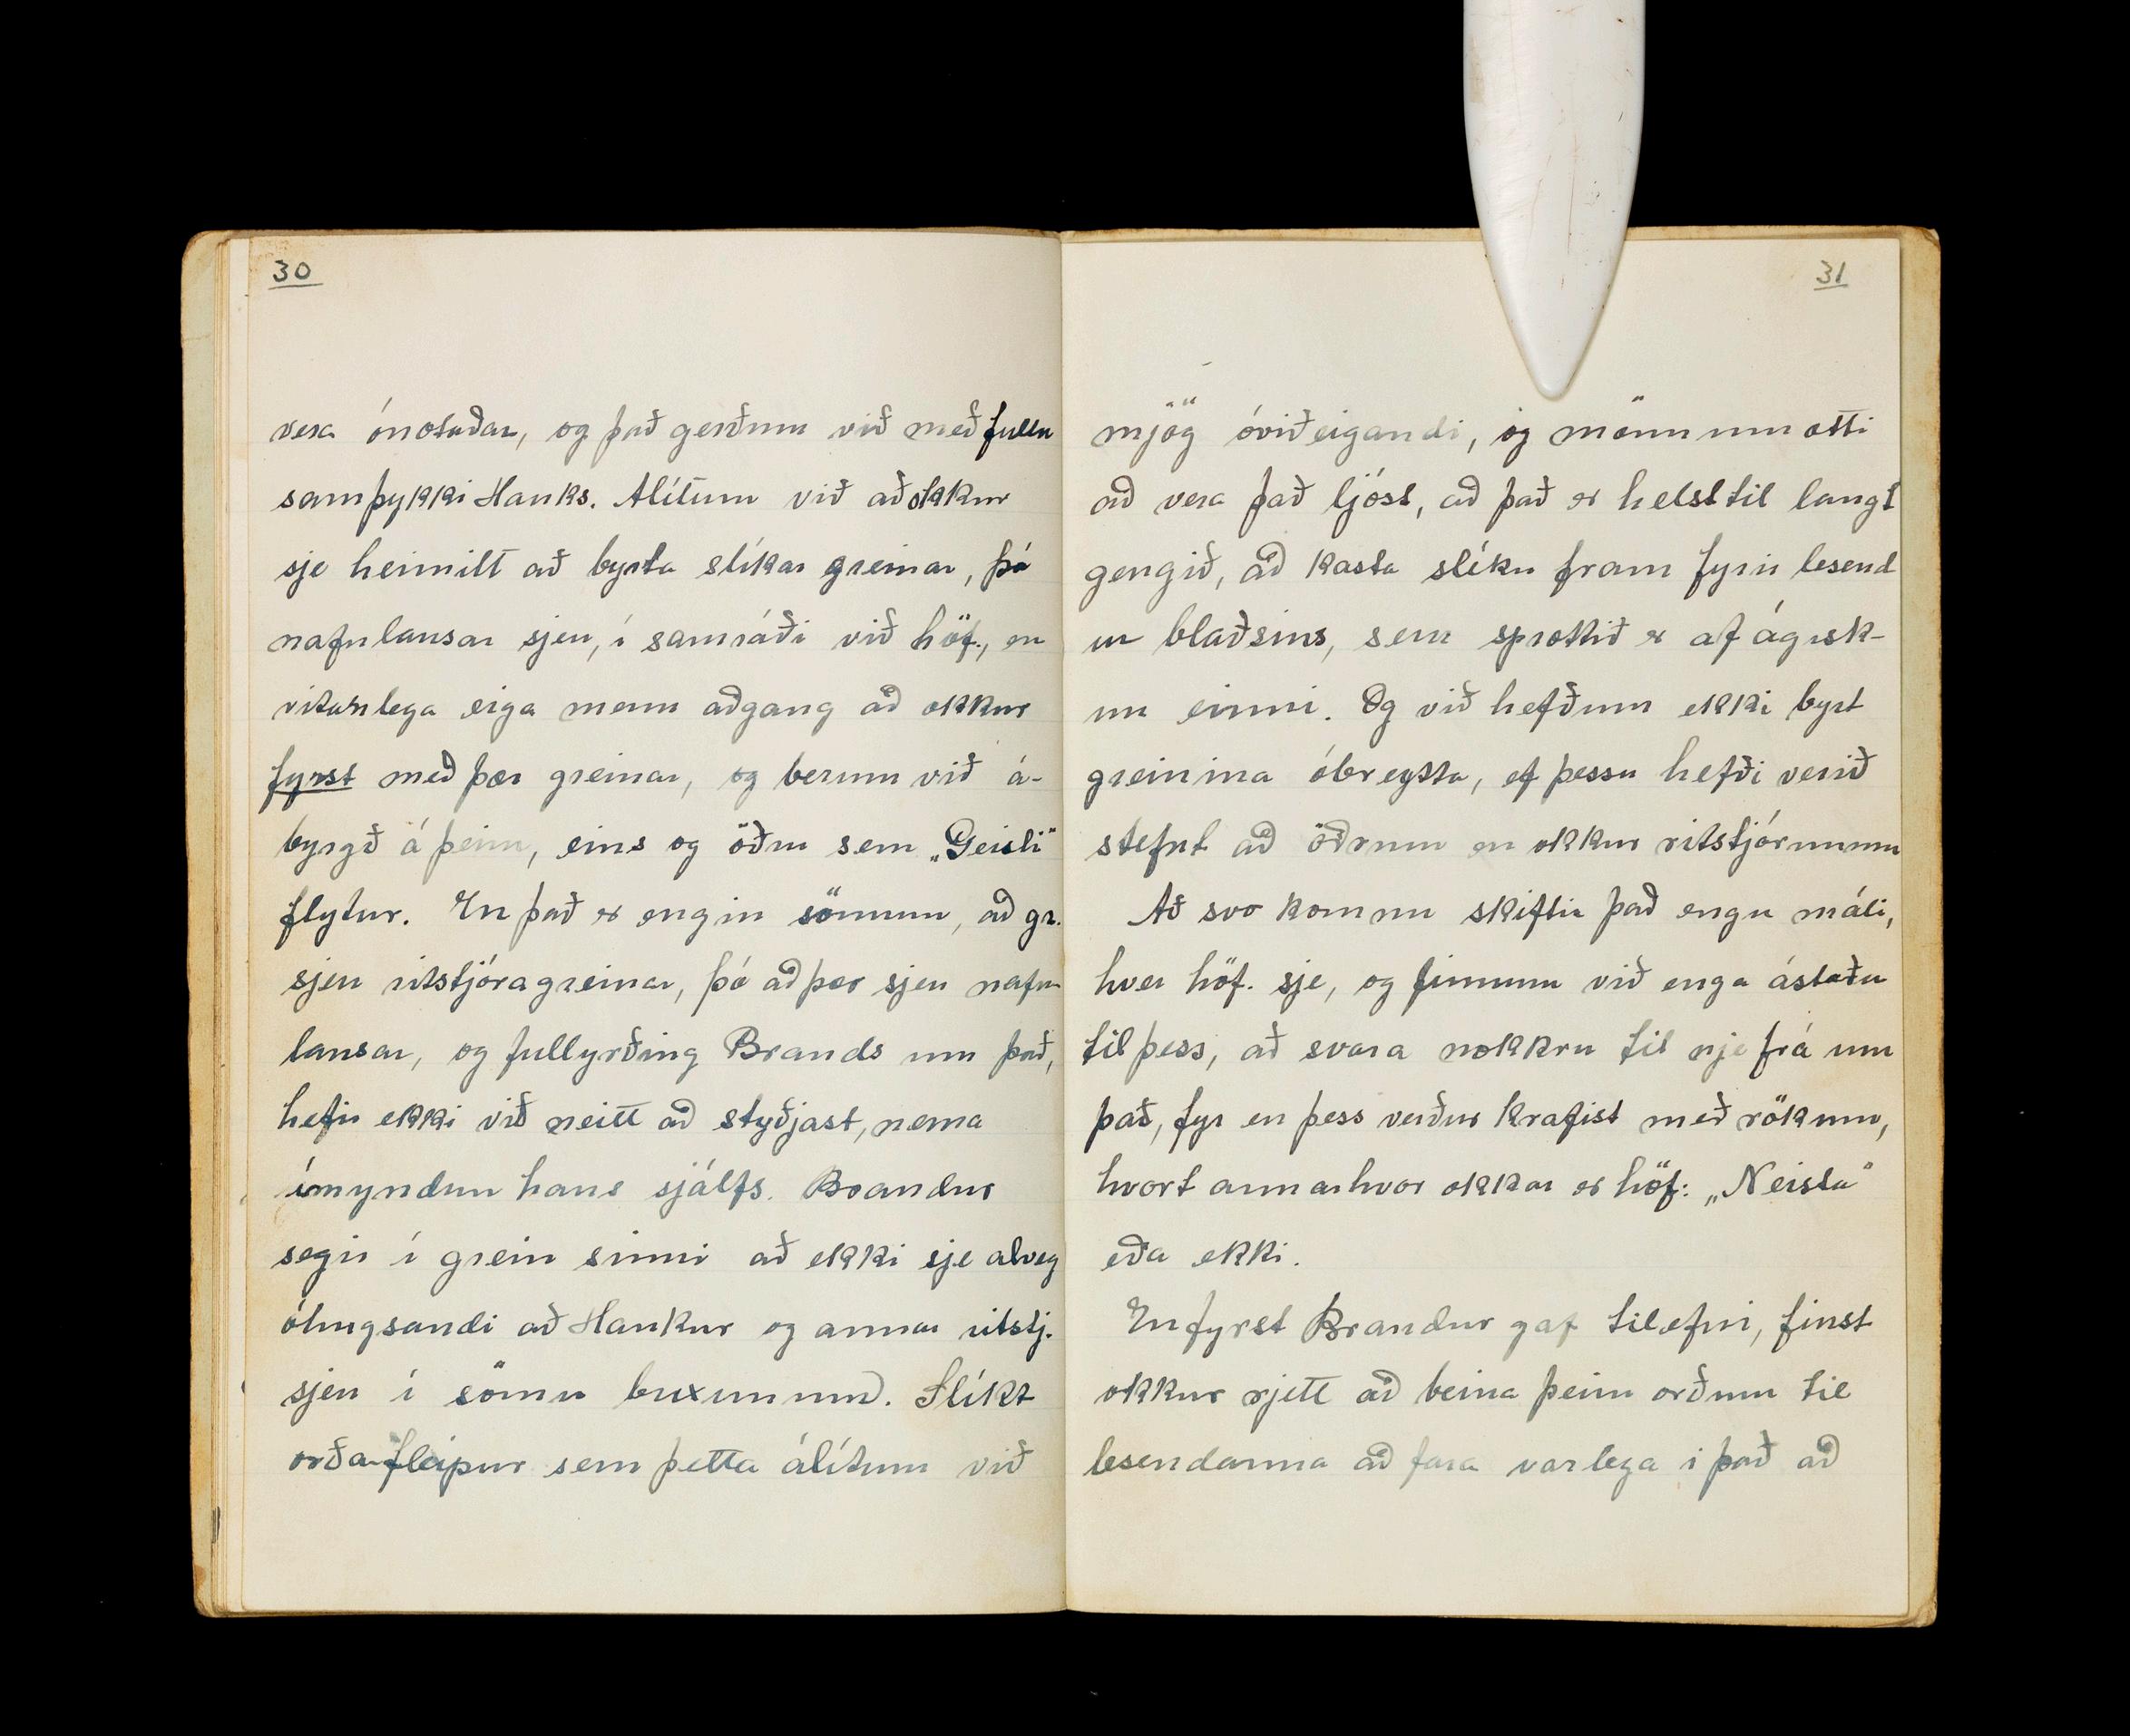 30
vera ónotaðar, og það gerðum við með fullu
samþykki Hauks. Álítum við að okkur
sje heimilt að byrta slíkar greinar, þó
nafnlausar sjeu, í samráði við höf., en
vitanlega eiga menn aðgang að okkur
fyrst með þær greinar, og berum við á-
byrgð á þeim, eins og öðru sem „Geisli"
flytur. En það er engin sönnun, að gr.
sjeu ritstjóragreinar, þó að þær sjeu nafn
lausar, og fullyrðing Brands um það,
hefir ekki við neitt að styðjast, nema
ímyndun hans sjálfs. Brandur
segir í grein sinni að ekki sje alveg
óhugsandi að Haukur og annar ritstj.
sjeu í sömu buxunum. Slíkt
orðafleipur sem þetta álítum við
31
mjög óviðeigandi, og mönnum ætti
að vera það ljóst, að það er helst til langt
gengið, að kasta slíku fram fyrir lesend
ur blaðsins, sem sprottið er af ágisk-
un einni. Og við hefðum ekki byrt
greinina óbreytta, ef þessu hefði verið
stefnt að öðrum en okkur ritstjórunum
Að svo komnu skiftir það engu máli,
hver höf. sje, og finnum við enga ástæðu
til þess, að svara nokkru til nje frá um
það, fyr en þess verður krafist með rökum,
hvort annarhvor okkar er höf: „Neista"
eða ekki.
En fyrst Brandur gaf tilefni, finst
okkur rjett að beina þeim orðum til
lesendanna að fara varlega í það að